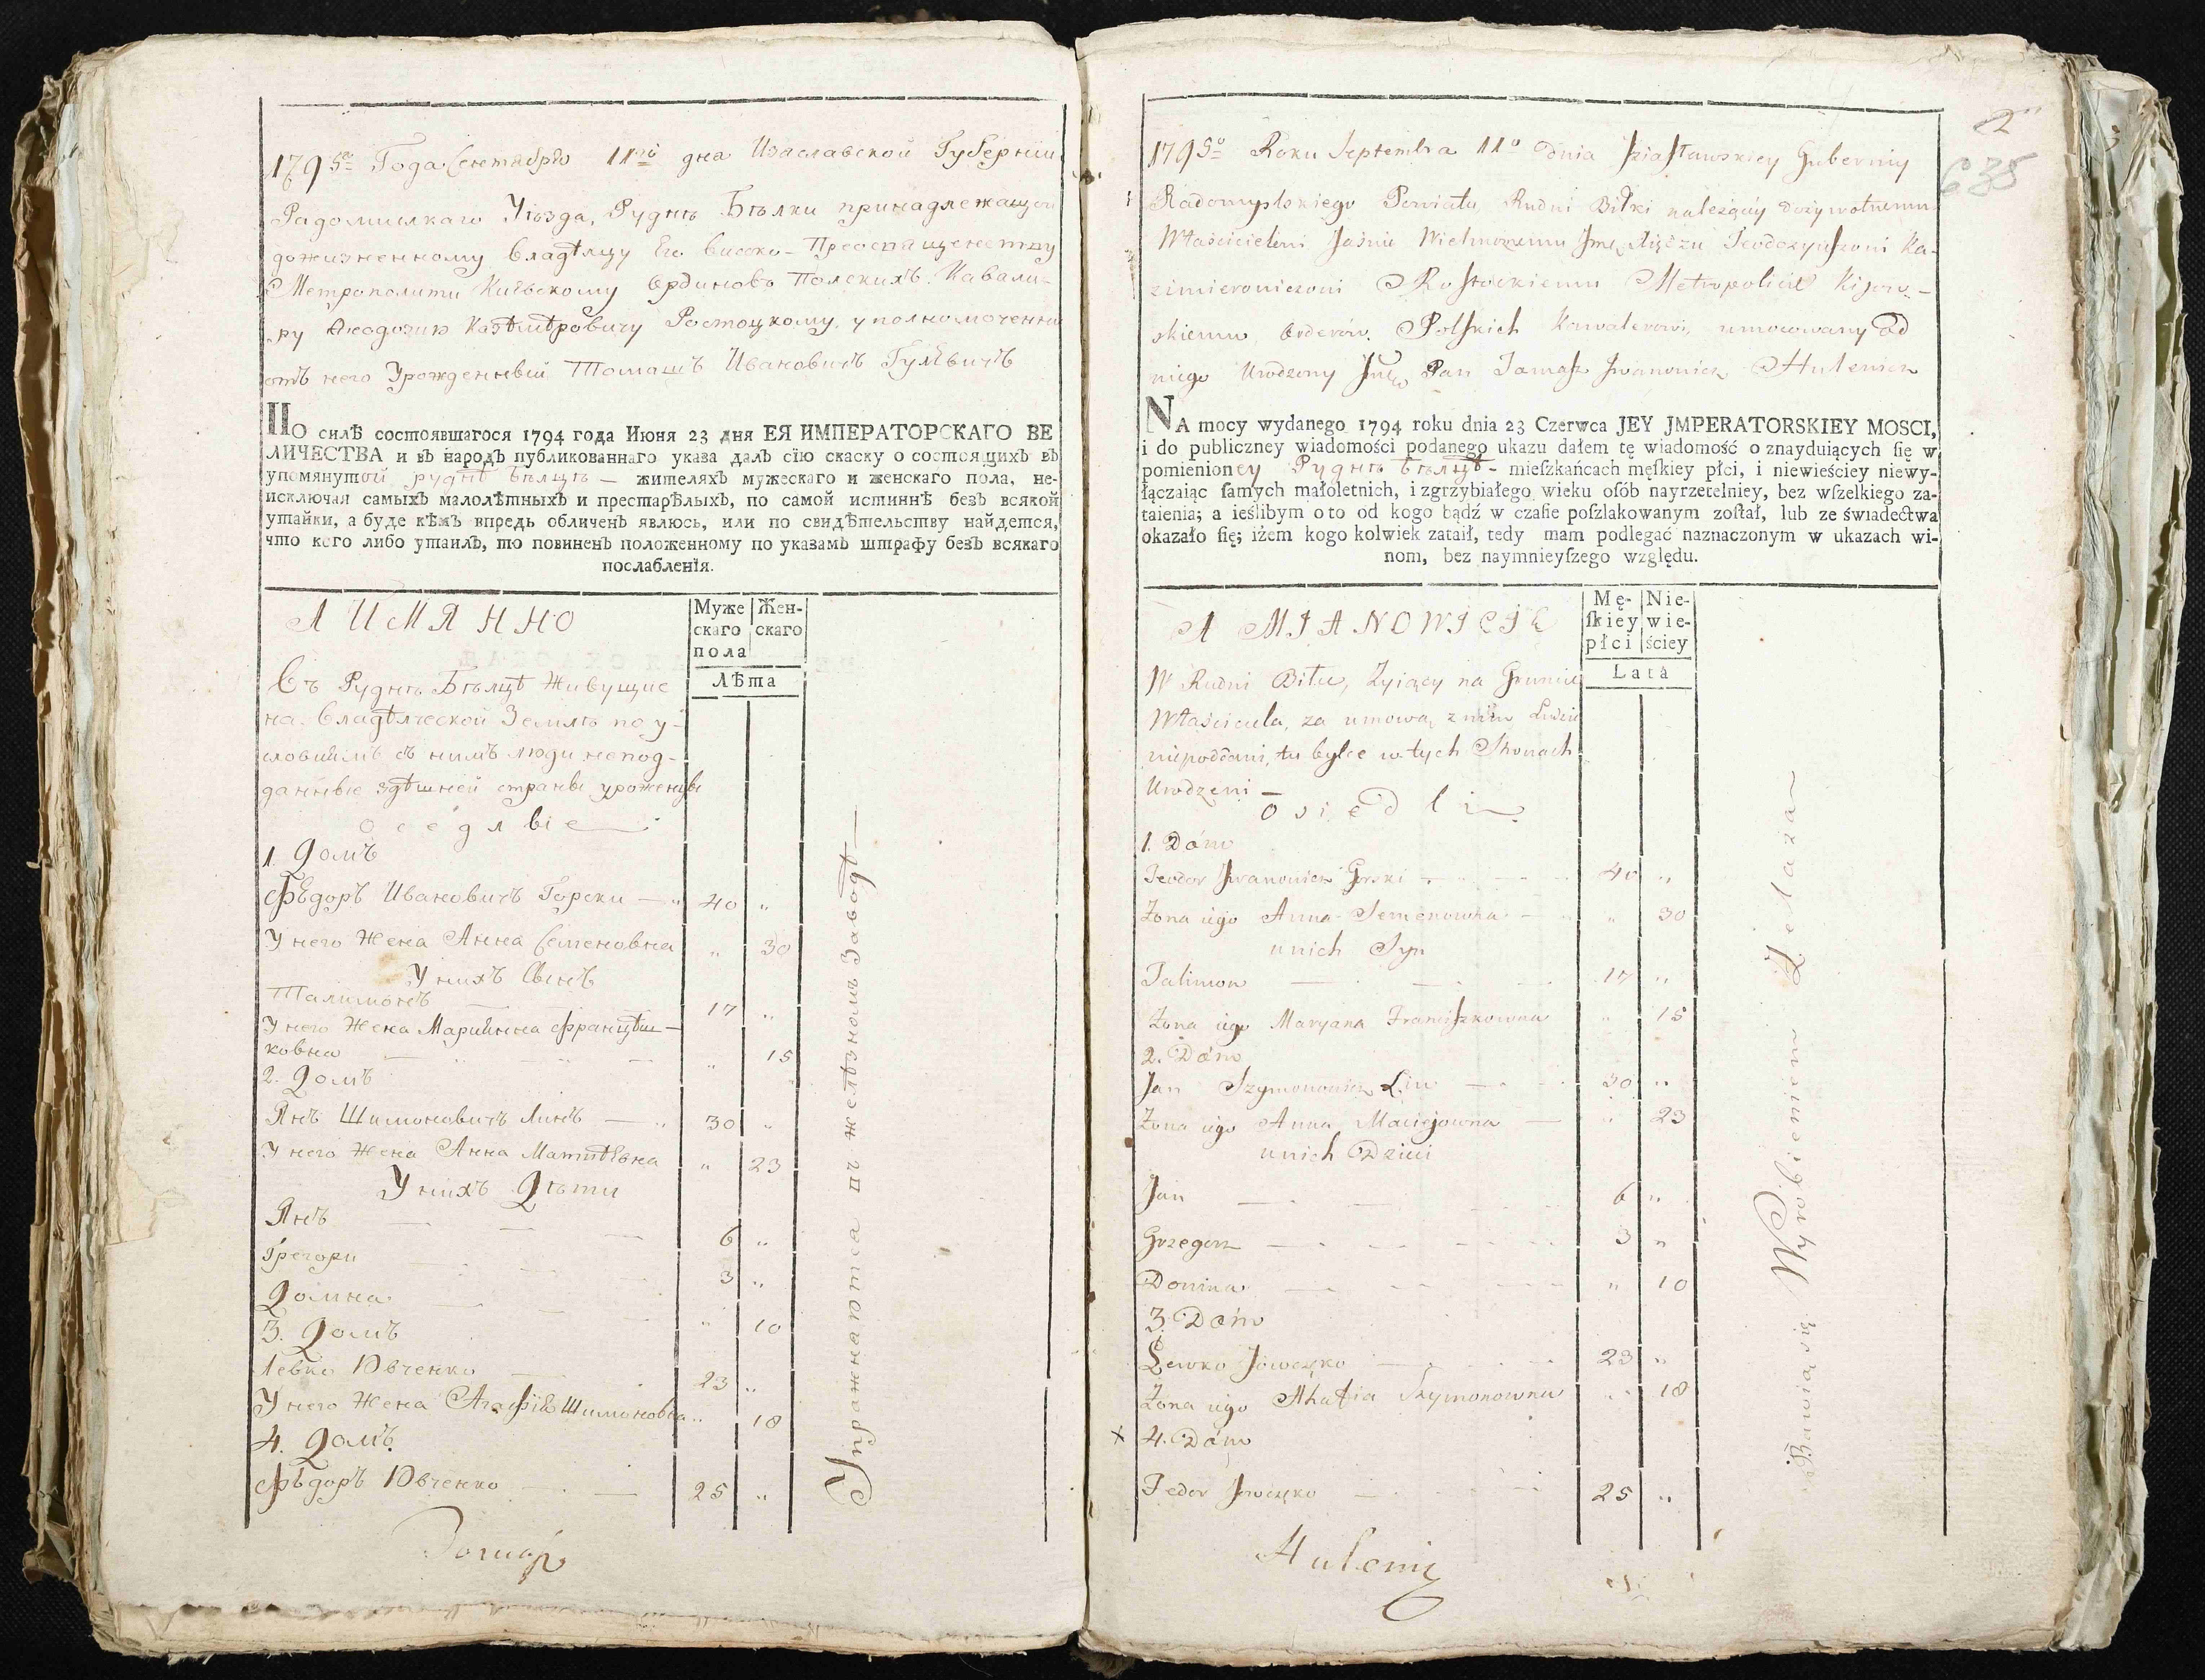 1795го Года Сентября 11го дня Изаславской Губернии
Радомишлкаго Уѣзда, Руднѣ Бѣлки принадлежащей
дожизненному Владѣлцу Его Високо-Преосвященству
Митрополити Киевскому Ординовъ Полскихъ Кавали-
ру Феодозию Казѣмѣровичу Ростоцкому, уполномоченни
отъ него Урожденный Томашъ Ивановичъ Гулѣвичъ
ПО силѣ состоявшагося 1794 года Июня 23 дня ЕЯ ИМПЕРАТОРСКАГО ВЕ
ЛИЧЕСТВА и въ народъ публикованнаго указа далъ сїю скаску о состоящихъ въ
упомянутой руднѣ Бѣлцѣ — жителяхъ мужескаго и женскаго пола, не-
исключая самыхъ малолѣтныхъ и престарѣлыхъ, по самой истиннѣ безъ всякой
утайки, а буде кѣмъ впредь обличенъ явлюсь, или по свидѣтельству найдется,
что кого либо утаилъ, то повиненъ положенному по указамъ штрафу безъ всякаго
послабленїя.
А ИМЯННО
Муже
скаго
пола
Жен-
скаго
Лѣта
Въ Руднѣ Бѣлцѣ Живущие
на Владѣлческой Землѣ по у-
словиямъ съ нимъ люди непод-
данные здѣшней страны уроженцы
Оседлые
1. Домъ
Фѣдоръ Ивановичъ Горски — 40 "
У него Жена Анна Семеновна " 30
У нихъ Сынъ
Талимонъ 17 "
У него Жена Мариянна Францѣш-
ковна " 15
2. Домъ
Янъ Шимоновичъ Линъ — 30 "
У него Жена Анна Матѣевна " 23
У нихъ Дѣти
Янъ 6 "
Грегори 3 "
Домна " 10
3. Домъ
Левко Ювченко 23 "
У него Жена Агафия Шимоновна " 18
4. Домъ
Фѣдоръ Ювченко 25 "
Упражняются въ желѣзномъ Заводѣ —
Томаш
2
635
1795o Roku Septembra 11o Dnia Jziasławskiey Guberniy
Radomyslskiego Powiatu, Rudni Biłki należącey dożywotniemu
Właścicielowi Jaśnie Wielmożnemu Jmć Xiędzu Teodozyuszowi Ka-
zimierowiczowi Rostockiemu Metropolicie Kijow-
skiemu Orderów Polskich Kawalerowi, umocowany od
niego Urodzony Jmć Pan Tomasz Jwanowicz Hulewicz
NA mocy wydanego 1794 roku dnia 23 Czerwca JEY JMPERATORSKIEY MOSCI,
i do publiczney wiadomości podanego ukazu dałem tę wiadomość o znayduiących się w
pomienioney Руднѣ Бѣлцѣ - mieſzkańcach męſkiey płci, i niewieściey niewy-
łączaiąc ſamych małoletnich, i zgrzybiałego wieku oſób nayrzetelniey, bez wſzelkiego za-
taienia; a ieślibym oto od kogo bądź w czaſie poſzlakowanym zoſtał, lub ze świadectwa
okazało ſię; iżem kogo kolwiek zataił, tedy mam podlegać naznaczonym w ukazach wi-
nom, bez naymnieyſzego względu.
A MIANOWICIE
Mę-
ſkiey
płci
Nie-
wie-
ściey
Lata
W Rudni Biłce, Żyiący na Gruncie
Właściciela, za umową z nim Ludzie
niepoddani, tu bylce w tych Stronach
Urodzeni —
Osiedli
1. Dóm
Teodor Jwanowicz Gorski 40 "
Żona iego Anna Semenowna " 30
u nich Syn
Talimon 17 "
Żona iego Maryana Franciszkowna " 15
2. Dóm
Jan Szymonowicz Lin 30 "
Żona iego Anna Maciejowna " 23
u nich Dzieci
Jan 6 "
Grzegorz 3 "
Domna " 10
3. Dóm
Lewko Jowczko 23 "
Żona iego Ahafia Szymonowna " 18
x 4. Dóm
Fedor Jowczko 25 "
Bawią się Wyrobieniem Żelaza
Hulewicz